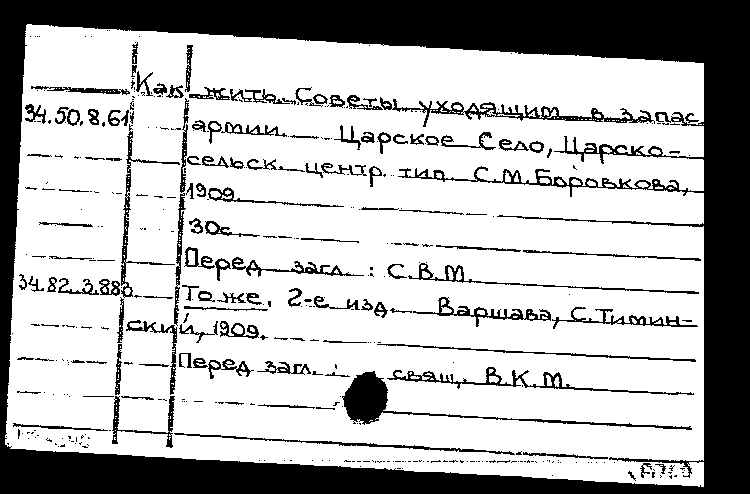 Как жить. Советы уходящим в запас
34.50.8.61 армии. Царское Село, Царско-
сельск. центр. тип. С.М.Боровкова,
1909.
30с.
Перед загл.: С.В.М.
34.82.3.883 То же. 2-е изд. Варшава, С.Тимин-
ский, 1909.
Перед загл.: свящ. В.К.М.